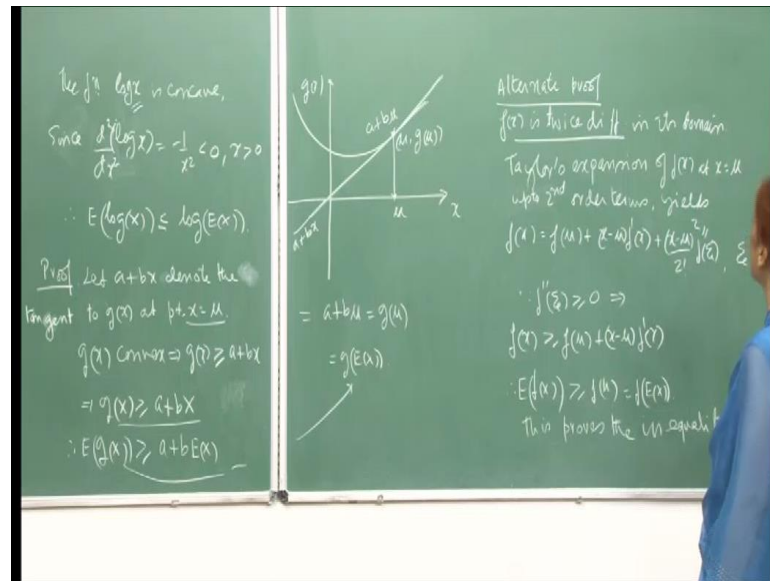 The fⁿ log x is concave,
Since d²(log x)/dx² = -1/x² < 0, x > 0
∴ E(log(X)) ≤ log(E(X)).
Proof Let a+bx denote the
tangent to g(x) at pt. x = μ.
g(x) convex ⇒ g(x) ≥ a+bx
⇒ g(X) ≥ a+bX
∴ E(g(X)) ≥ a+bE(X)
g(x)
a+bμ
(μ, g(μ))
μ
x
a+bx
= a+bμ = g(μ)
= g(E(X))
Alternate proof
f(x) is twice diff in its domain
Taylor's expansion of f(x) at x=μ
upto 2nd order terms, yields
f(x) = f(μ) + (x-μ)f'(x) + (x-μ)²/2! f''(ξ), ξ
∵ f''(ξ) ≥ 0 ⇒
f(x) ≥ f(μ) + (x-μ)f'(x)
∴ E(f(x)) ≥ f(μ) = f(E(X)).
This proves the inequalit